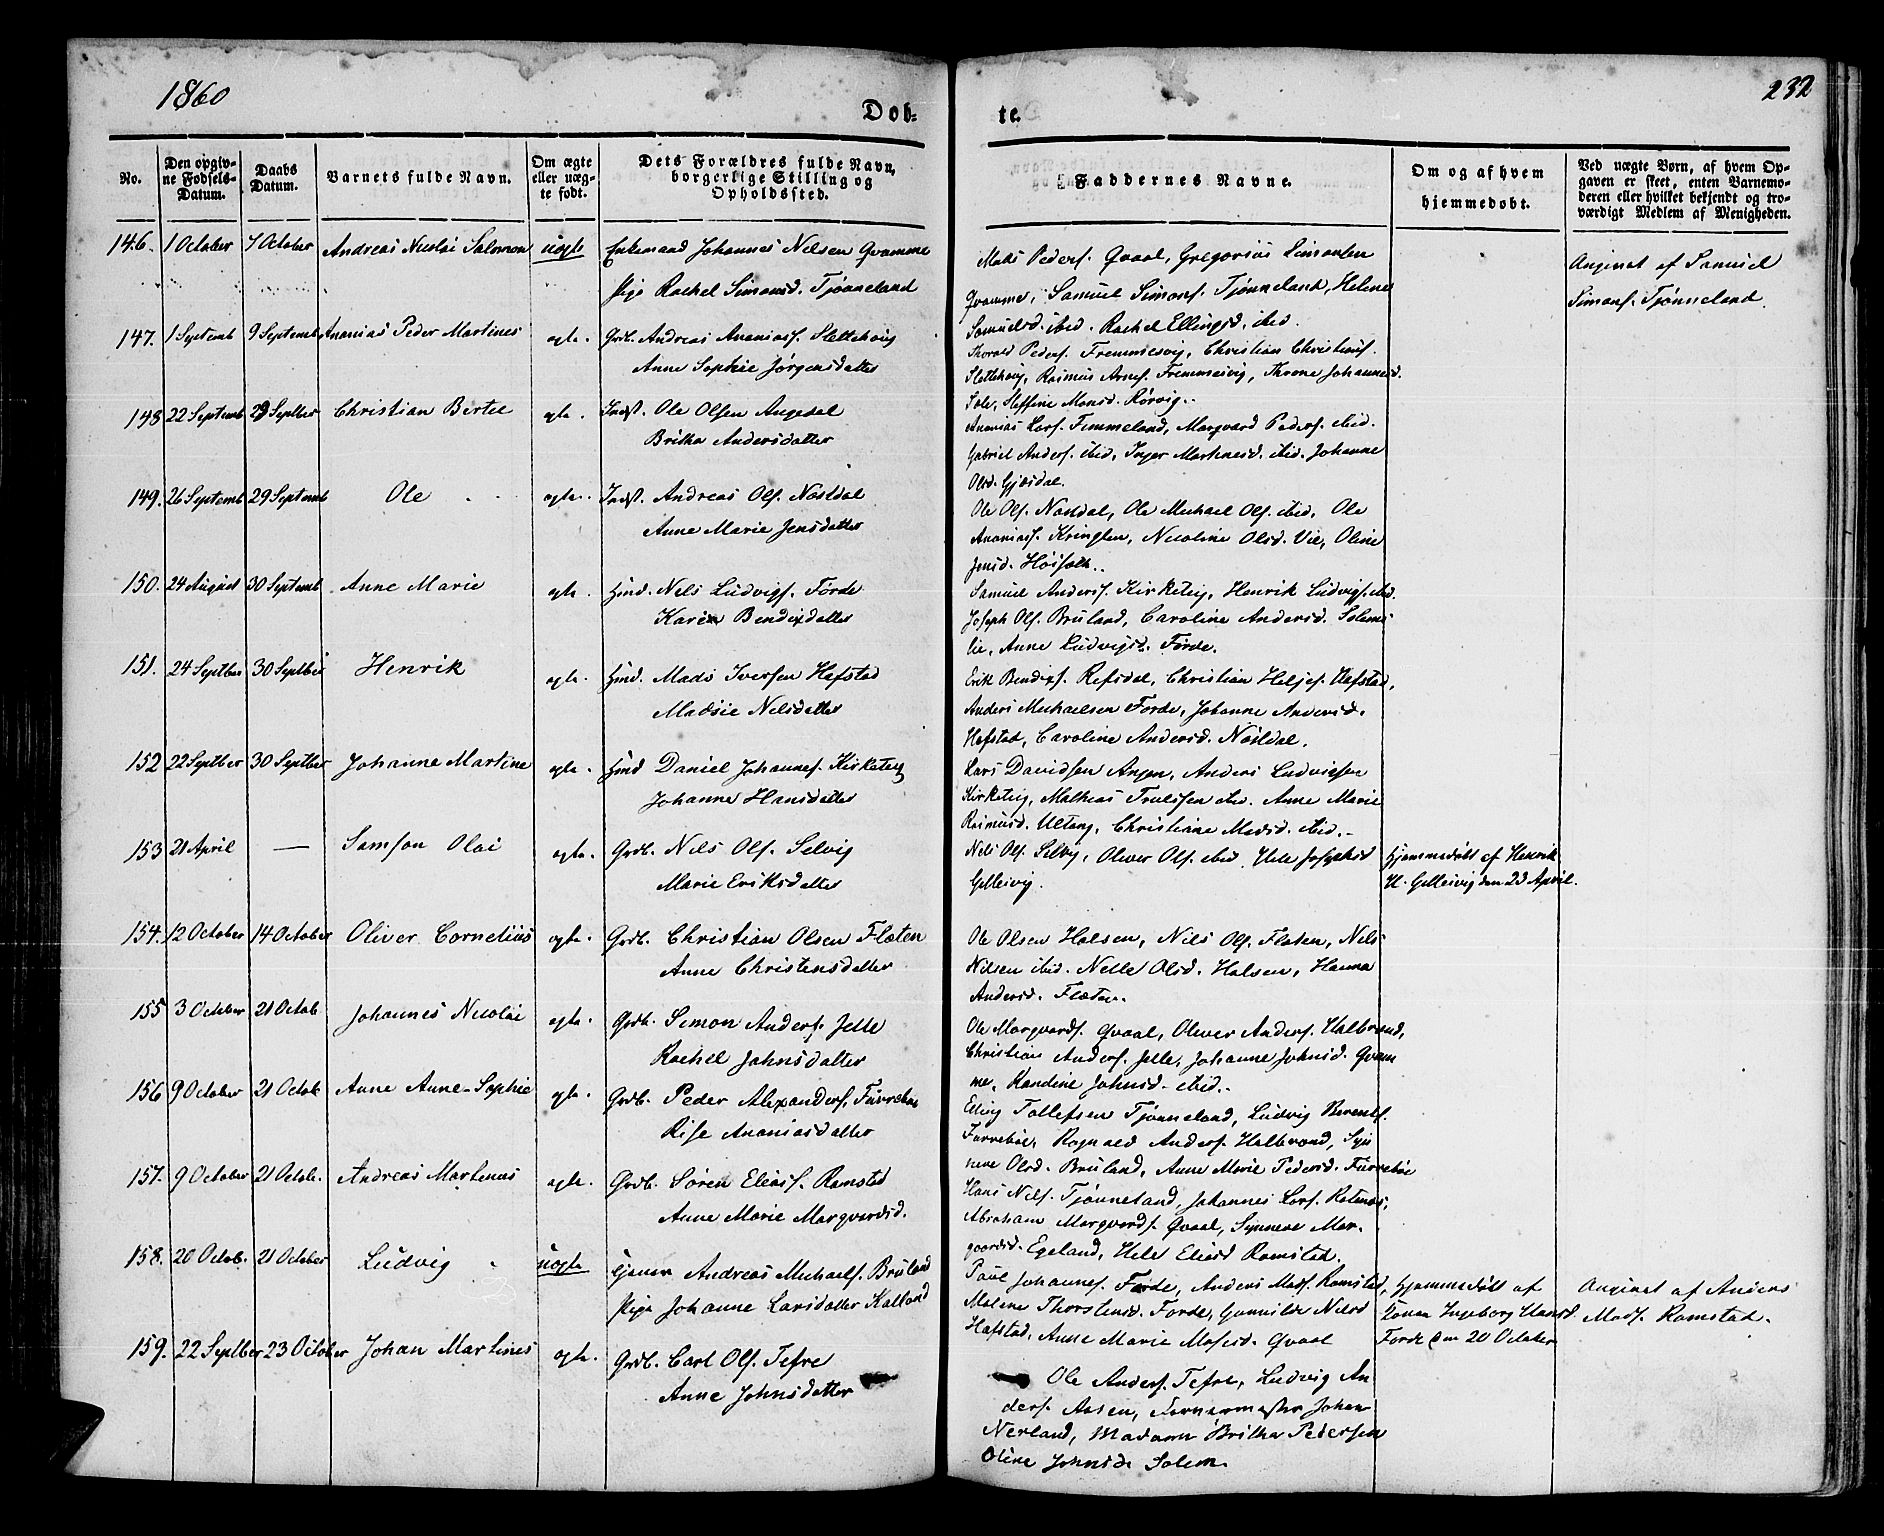 1860
232
Dob-
te.
No.
Den opgiv-
ne Fødsels-
Datum.
Daabs
Datum.
Barnets fulde Navn.
Om ægte
eller uæg-
te født.
Dets Forældres fulde Navn,
borgerlige Stilling og
Opholdssted.
Faddernes Navne.
Om og af hvem
hjemmedøbt.
Ved uægte Børn, af hvem Op-
gaven er skeet, enten Barnemo-
deren eller hvilket bekjendt og tro-
værdigt Medlem af Menigheden.
146. 1 October 7 October Andreas Nicolai Salomon uægte Enkemand Johannes Nilsen Qvamme
Pige Rachel Simonsd. Tjønneland
Mads Peders. Qvaal, Gregorius Simonsen
Qvamme, Samuel Simons. Tjønneland, Helene
Samuelsd. ibid. Rachel Ellingsd. ibid.
Angivet af Samuel
Simons. Tjønneland.
147. 1 Septemb 9 Septemb Ananias Peder Martines ægte. Grdb. Andreas Ananiass. Slettehaug
Anne Sophie Jørgensdatter
Thorald Peders. Fremmesvig, Christian Christians.
Slettehaug, Rasmus Arnes. Fremmesvig, Throne Johannesd.
Sole, Steffine Monsd. Rørvig.
148 22 Septemb 29 Septber Christian Bertel ægte. Indst. Ole Olsen Angedal
Britha Andersdatter
Ananias Lars. Fimmeland, Margvard Peders. ibid.
Gabriel Anders. ibid, Inger Martinesd. ibid. Johanne
Olsd. Gjæsdal.
149. 26 Septemb 29 Septemb Ole ægte. Indst. Andreas Ols. Nøsdal
Anne Marie Jensdatter
Ole Ols. Nøsdal, Ole Michael Ols. ibid, Ole
Ananiass. Kringlen, Nicoline Olsd. Vie, Oline
Jensd. Høisæth.
150. 24 August 30 Septemb Anne Marie ægte. Huusd. Nels Ludvigs. Førde
Karen Bendixdatter
Samuel Anders. Kirketeig, Henrik Ludvigs. ibid.
Joseph Ols. Bruland, Caroline Andersd. Solems
lie, Anne Ludvigsd. Førde.
151. 24 Septber 30 Septber Henrik ægte. Huusd. Mads Iversen Hafstad
Madsie Nelsdatter
Erik Bendixs. Refsdal, Christian Heljes. Hafstad,
Anders Michaelsen Førde, Johanne Andersd.
Hafstad, Caroline Andersd. Nøsdal.
152 22 Septber 30 Septber Johanne Martine ægte. Huusd Daniel Johannes. Kirketeig
Johanne Hansdatter
Lars Davidsen Angen, Anders Ludvigsen
Kirketeig, Mathias Truelssen ibid. Anne Marie
Rasmusd. Ultang, Christiane Madsd. ibid.
153 21 April — Samson Olai ægte. Grdb. Nils Ols. Selvig
Marie Eriksdatter
Nels Ols. Selvig, Oliver Ols. ibid. Hele Josephsd
Gjelleivig.
Hjemmedøbt af Henrik
H. Gjelleivig den 23 April.
154. 12 October 14 October Oliver Cornelius ægte. Grdb. Christian Olsen Flaten
Anne Christensdatter
Ole Olsen Halsen, Nils Ols. Flaten, Nils
Nilsen ibid. Nelle Olsd. Halsen, Hanna
Andersd. Flaten.
155 3 October 21 Octob. Johannes Nicolai ægte. Grdb. Simon Anders. Jelle
Rachel Johnsdatter
Ole Margvards. Qvaal, Oliver Anders. Halbrend,
Christian Anders. Jelle, Johanne Johnsd. Qvam
me, Kandine Johnsd. ibid.
156 9 October 21 Octob. Anne Anne-Sophie ægte. Grdb. Peder Alexanders. Furrebøe
Rise Ananiasdatter
Elling Tollefsen Tjønneland, Ludvig Berents.
Furrebøe, Rognald Anders. Halbrend, Syn
neve Olsd. Bruland, Anne Marie Pedersd. Furrebøe
157. 9 October 21 Octob. Andreas Martinus ægte. Grdb. Søren Eliass. Ramstad
Anne Marie Margvardsd.
Hans Nils. Tjønneland, Johannes Lars. Ratenæs,
Abraham Margvards. Qvaal, Synneve Mar-
gvardsd. Egeland, Hele Eliasd Ramstad.
158. 20 Octob. 21 October Ludvig uægte Tjener Andreas Michaels. Bruland
Pige Johanne Larsdatter Kalland
Paul Johannes. Førde, Anders Mads. Ramstad,
Malene Thorstensd. Førde, Gunnilde Nilsd
Hafstad, Anne Marie Mosesd. Qvaal
Hjemmedøbt af
Konen Ingeborg Hansd.
Førde den 20 October
Angivet af Anders
Mads. Ramstad.
159. 22 Septber 23 October Johan Martines ægte. Grdb. Carl Ols. Tefre
Anne Johnsdatter
Ole Anders. Tefre, Ludvig An
ders. Aasen, Farvermester Johan
Nerland, Madam Britha Pedersen
Oline Johnsd. Solem.